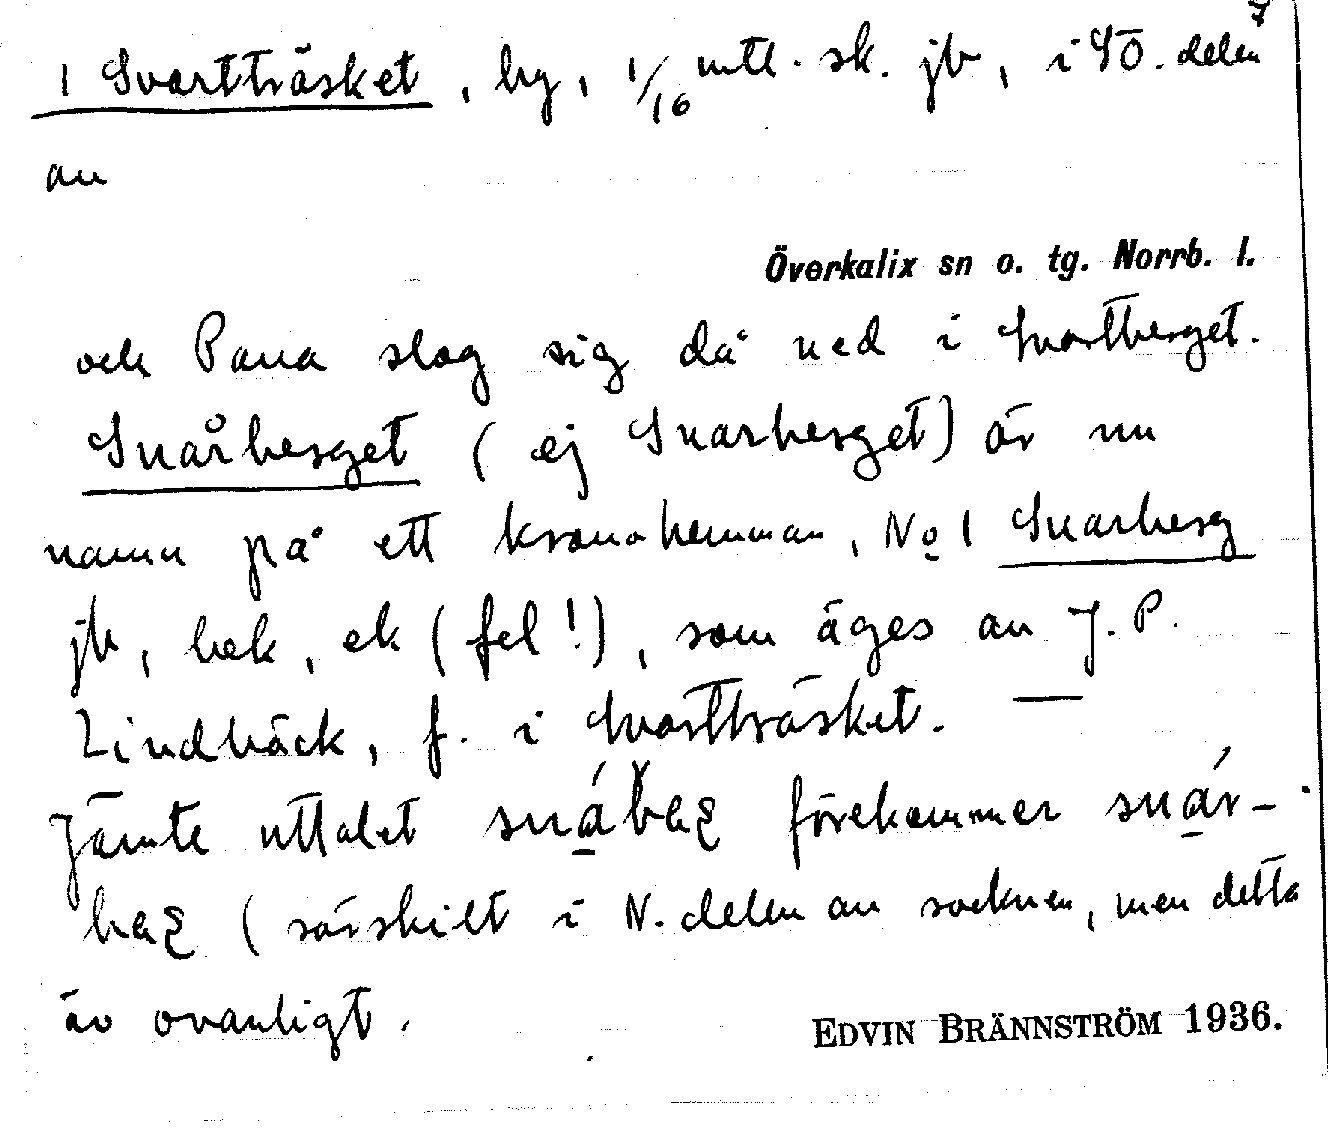 7
1 Svartträsket, by, 1/16 mtl. sk. jb, i SÖ. delen
av
Överkalix sn o. tg. Norrb. l.
och Pana slog sig då ned i Svartberget.
Snårberget (ej Snarberget) är nu
namn på ett kronohemman, No 1 Snarberg
jb, bek, ek (fel!), som äges av J. P.
Lindbäck, f. i Svartträsket. —
Jämte uttalet förekommer snár-
(särskilt i N. delen av socknen, men detta
är ovanligt.
EDVIN BRÄNNSTRÖM 1936.